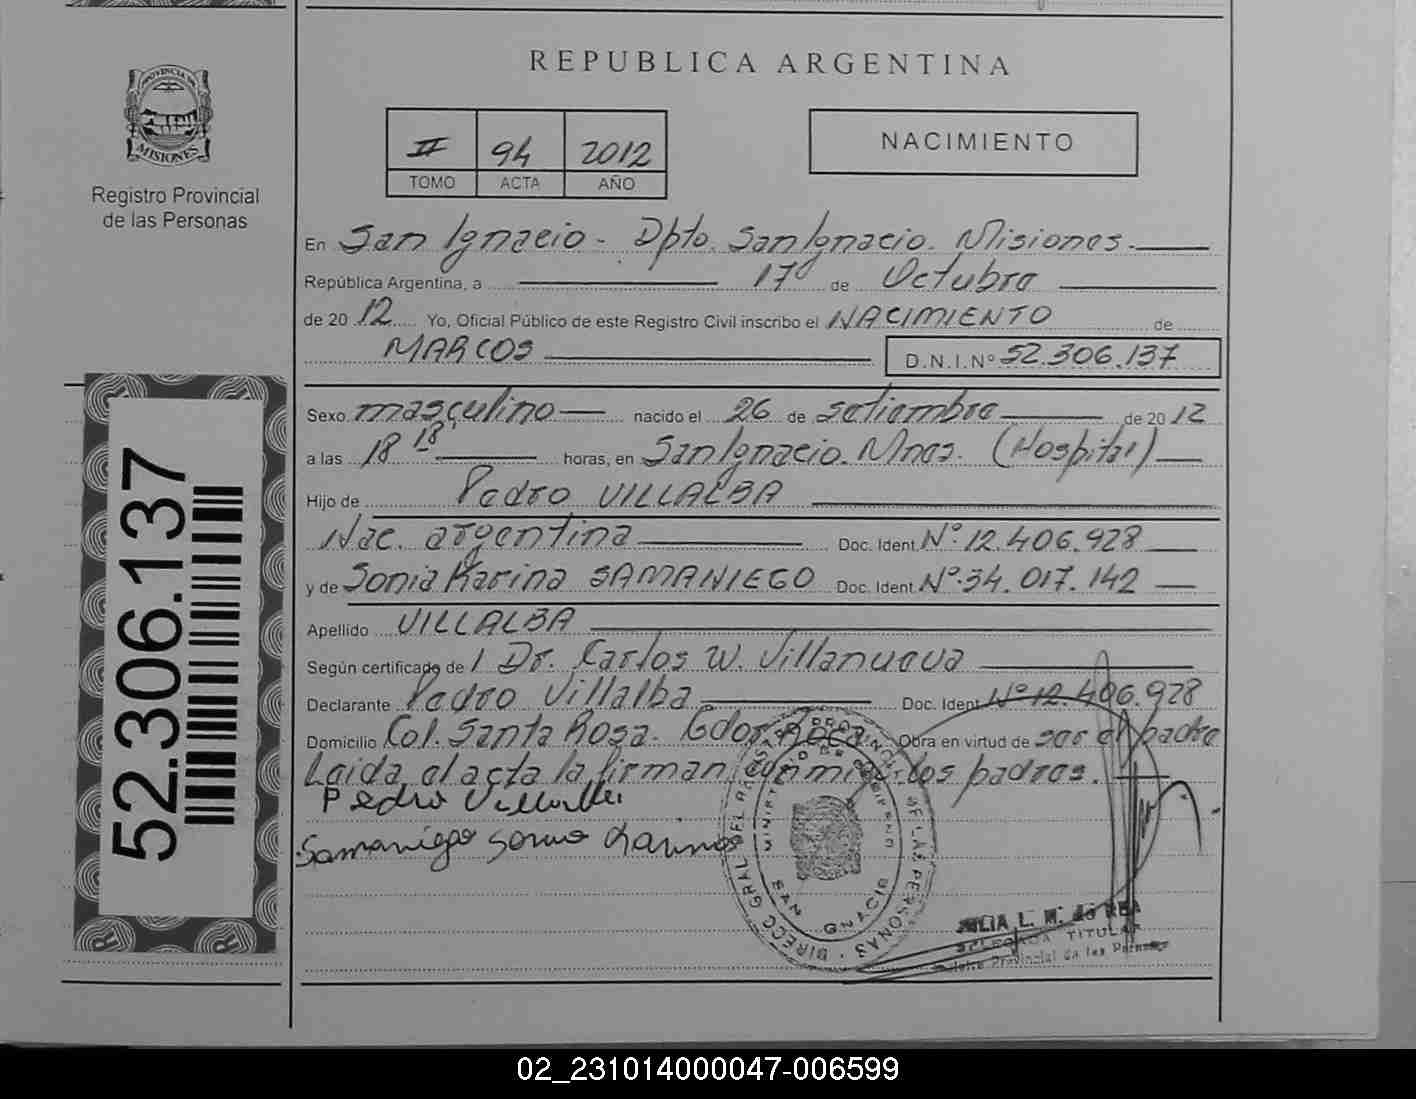 REPUBLICA ARGENTINA
PROVINCIA DE
MISIONES
Registro Provincial
de las Personas
II 94 2012
TOMO ACTA AÑO
NACIMIENTO
En San Ignacio - Dpto. San Ignacio. Misiones.
República Argentina, a 17 de Octubre
de 20 12 Yo, Oficial Público de este Registro Civil inscribo el NACIMIENTO de
MARCOS D.N.I.Nº 52.306.137
Sexo masculino nacido el 26 de setiembre de 20 12
a las 18 18' horas, en San Ignacio. Mnes. (Hospital)
Hijo de Pedro VILLALBA
Nac. argentina Doc. Ident. Nº 12.406.928
y de Sonia Karina SAMANIEGO Doc. Ident. Nº 34.017.142
Apellido VILLALBA
Según certificado de / Dr. Carlos W. Villanueva
Declarante Pedro Villalba Doc. Ident. Nº 12.406.928
Domicilio Col. Santa Rosa. Gdor. Roca Obra en virtud de ser el padre
Leida el acta la firman conmigo los padres.
Pedro Villalba
Samaniego Sonia Karina
DIRECC. GRAL. DEL REGISTRO PROVINCIAL DE LAS PERSONAS
MINISTERIO DE GOBIERNO
SAN IGNACIO
JULIA L. M. de
DELEGADA TITULAR
Provincial de las Personas
52.306.137
02_231014000047-006599